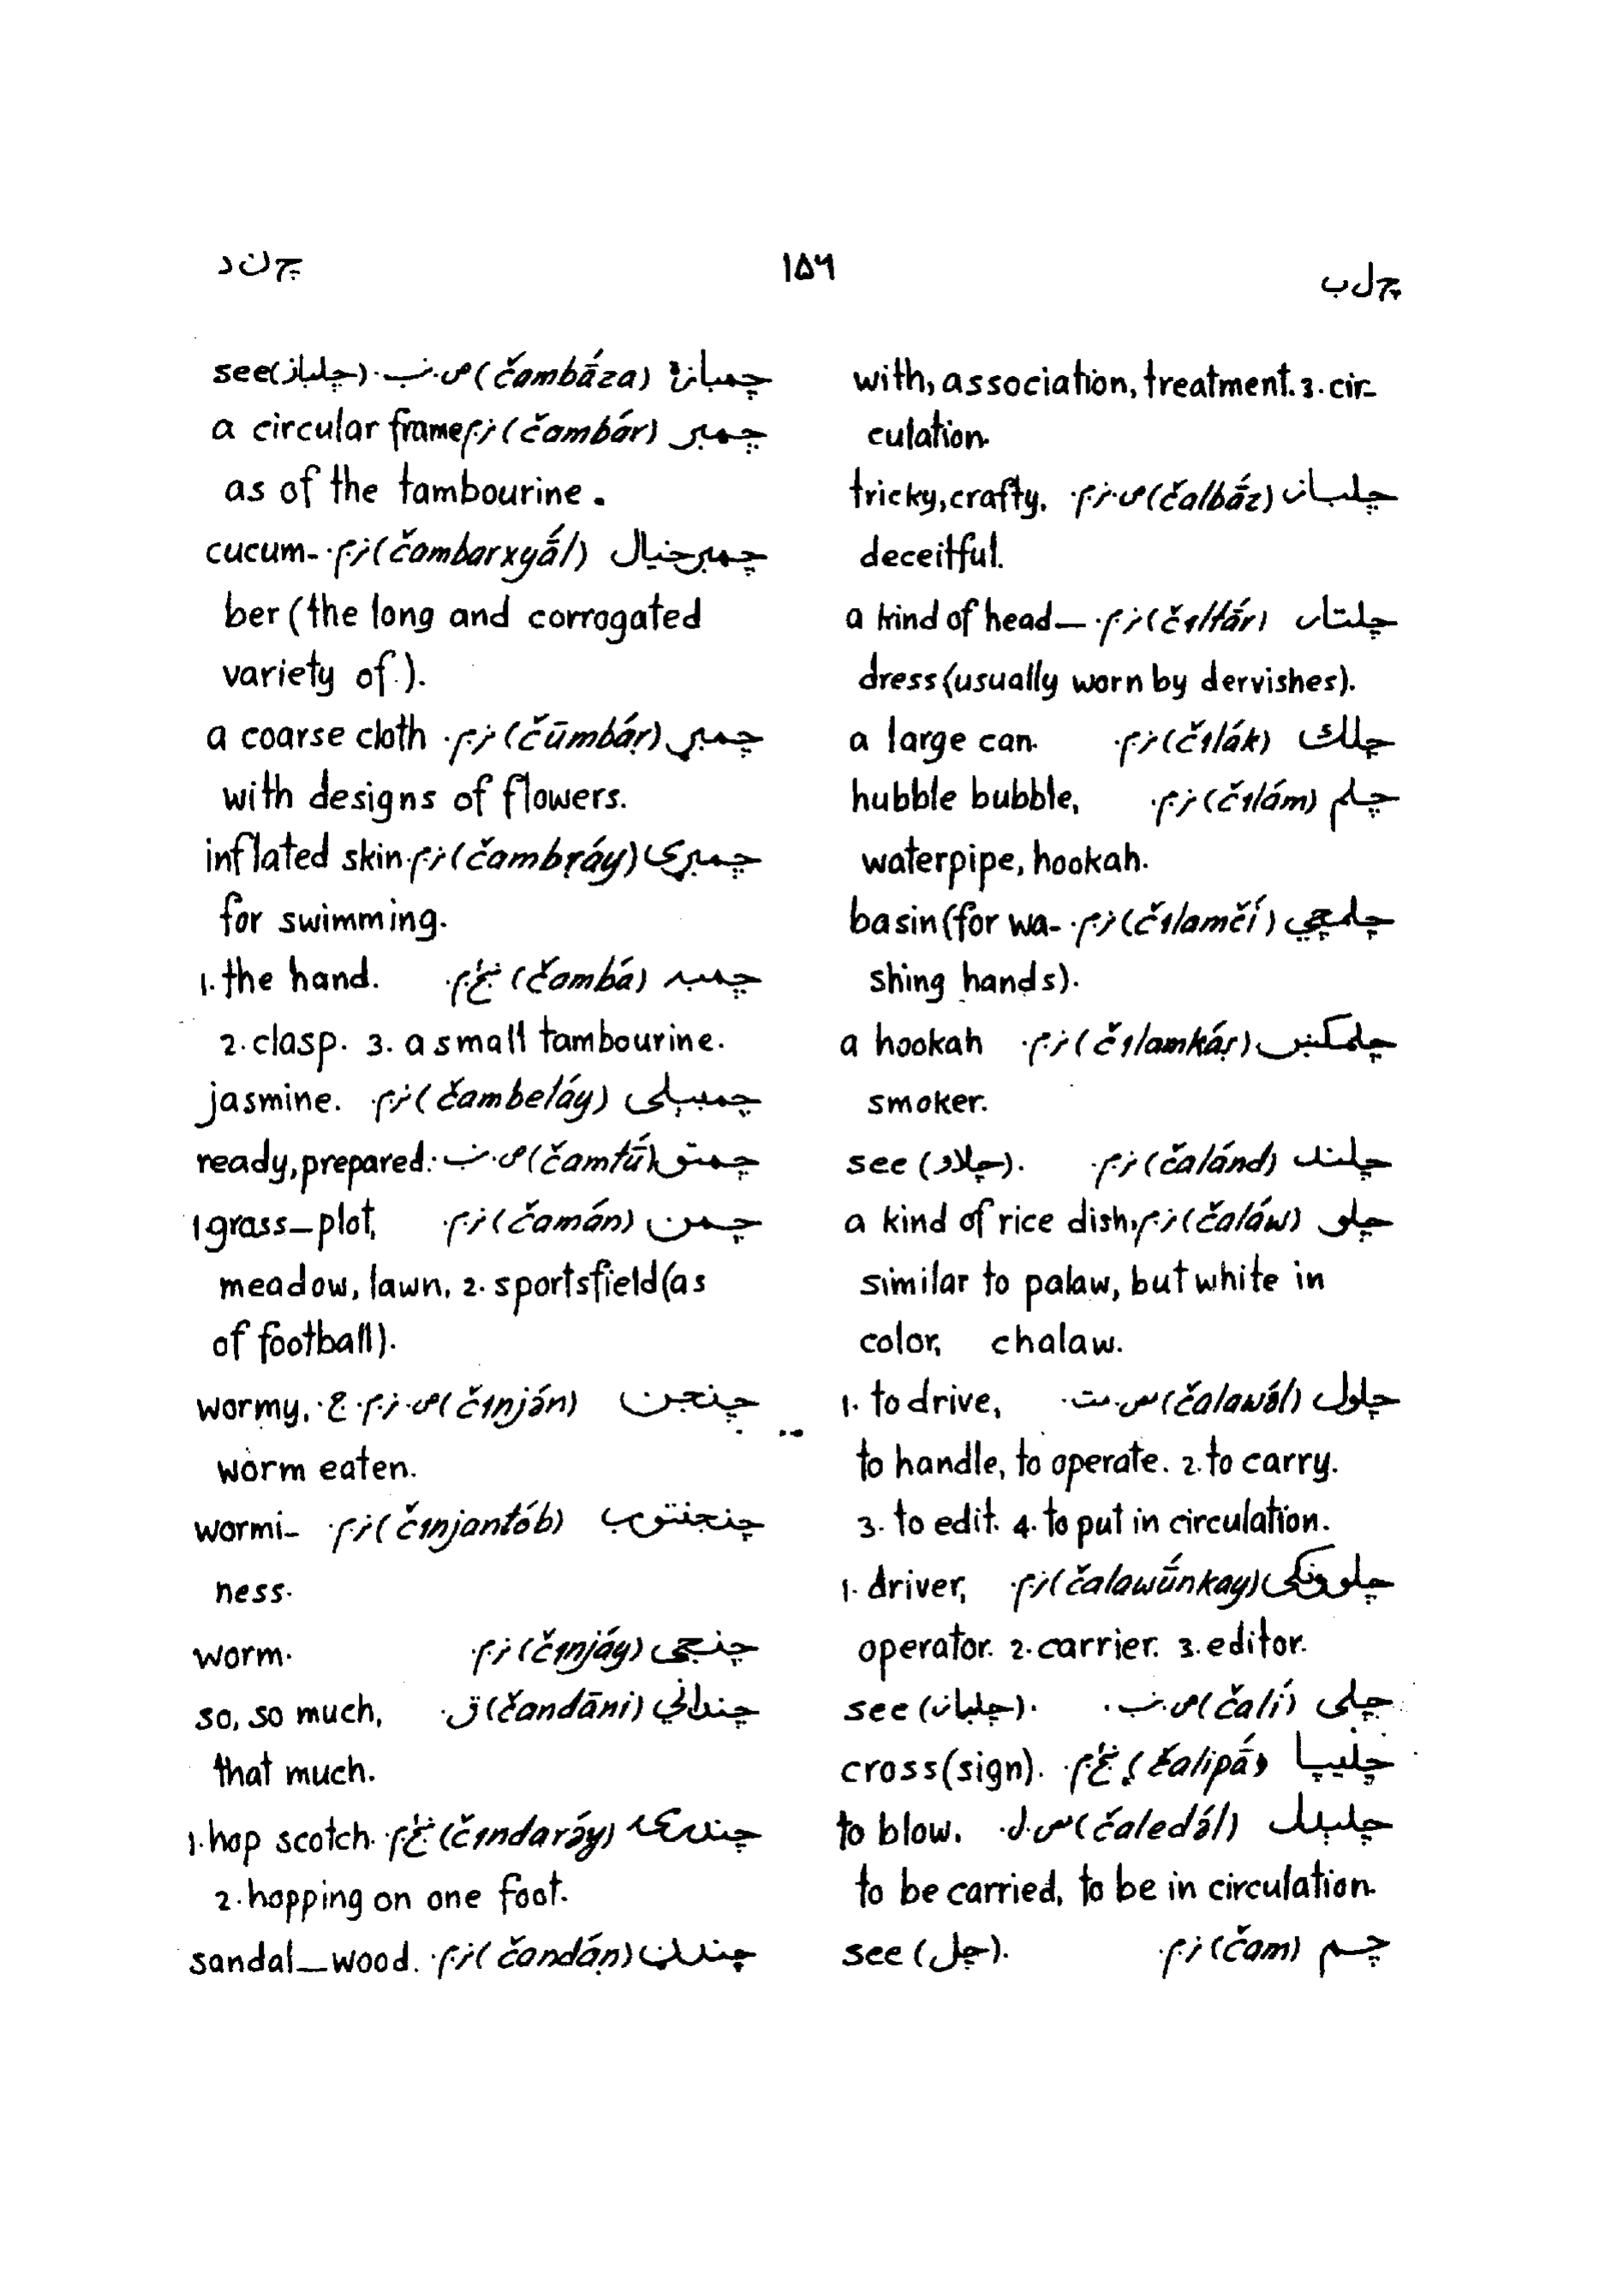 چ ل ب
۱۵۶
چ ن د
with, association, treatment. 3. cir-
culation.
چلباز (čalbā́z) ص. ز. م. tricky, crafty,
deceitful.
چلتار (čıltā́r) ز. م. a kind of head-
dress (usually worn by dervishes).
چلك (čılák) ز. م. a large can.
چلم (čılám) ز. م. hubble bubble,
waterpipe, hookah.
چلمچي (čılamčí) ز. م. basin (for wa-
shing hands).
چلمکښ (čılamkáṣ) ز. م. a hookah
smoker.
چلند (čalánd) ز. م. see (چلاد).
چلو (čaláw) ز. م. a kind of rice dish,
similar to palaw, but white in
color, chalaw.
چلول (čalawə́l) س. مت. 1. to drive,
to handle, to operate. 2. to carry.
3. to edit. 4. to put in circulation.
چلوونکی (čalawū́nkay) ز. م. 1. driver,
operator. 2. carrier. 3. editor.
چلی (čalí) ص. ب. see (چلباز).
چلیپا (čalipā́) ښځ. م. cross (sign).
چلېدل (čaledə́l) س. ل. to blow,
to be carried, to be in circulation.
چم (čam) ز. م. see (چل).
چمبازه (čambā́za) ص. ب. see (چلباز)
چمبر (čambár) ز. م. a circular frame
as of the tambourine.
چمبرخیال (čambarxyā́l) ز. م. cucum-
ber (the long and corrogated
variety of).
چمبړ (čūmbáṛ) ز. م. a coarse cloth
with designs of flowers.
چمبړی (čambṛáy) ز. م. inflated skin
for swimming.
چمبه (čambá) ښځ. م. 1. the hand.
2. clasp. 3. a small tambourine.
چمبېلی (čambeláy) ز. م. jasmine.
چمتو (čamtú) ص. ب. ready, prepared.
چمن (čamán) ز. م. 1. grass-plot,
meadow, lawn, 2. sportsfield (as
of football).
چنجن (čınján) ص. ز. م. ج. wormy,
worm eaten.
چنجنتوب (čınjantób) ز. م. wormi-
ness.
چنجی (čınjáy) ز. م. worm.
چنداني (čandāni) ق. so, so much,
that much.
چندرۍ (čındarə́y) ښځ. م. 1. hop scotch.
2. hopping on one foot.
چندڼ (čandáṇ) ز. م. sandal-wood.